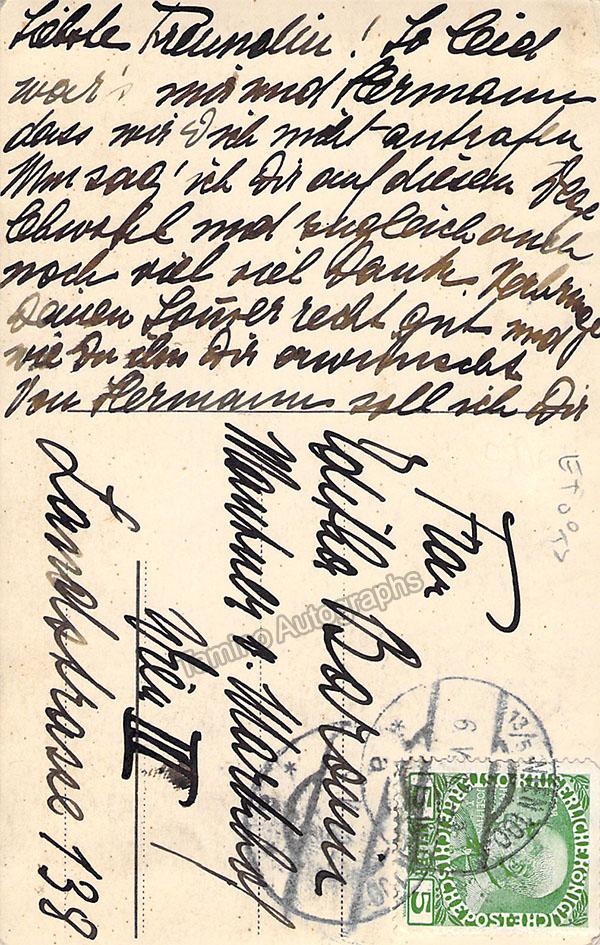 Liebste Freundin! So leid
war's mir und Hermann
dass wir Dich nicht antrafen
Nun sag' ich Dir auf diesem Wege
Lebwohl und zugleich auch
noch viel viel Dank. Verbringe
Deinen Sommer recht gut und
wie Du ihn Dir erwünscht
Von Hermann soll ich Dir
Frau
Baronin
Wien III
Landstrasse 138
Tamino Autographs
WIEN
KAISERLICHE·KÖNIGLICHE
ÖSTERREICHISCHE POST
5
5